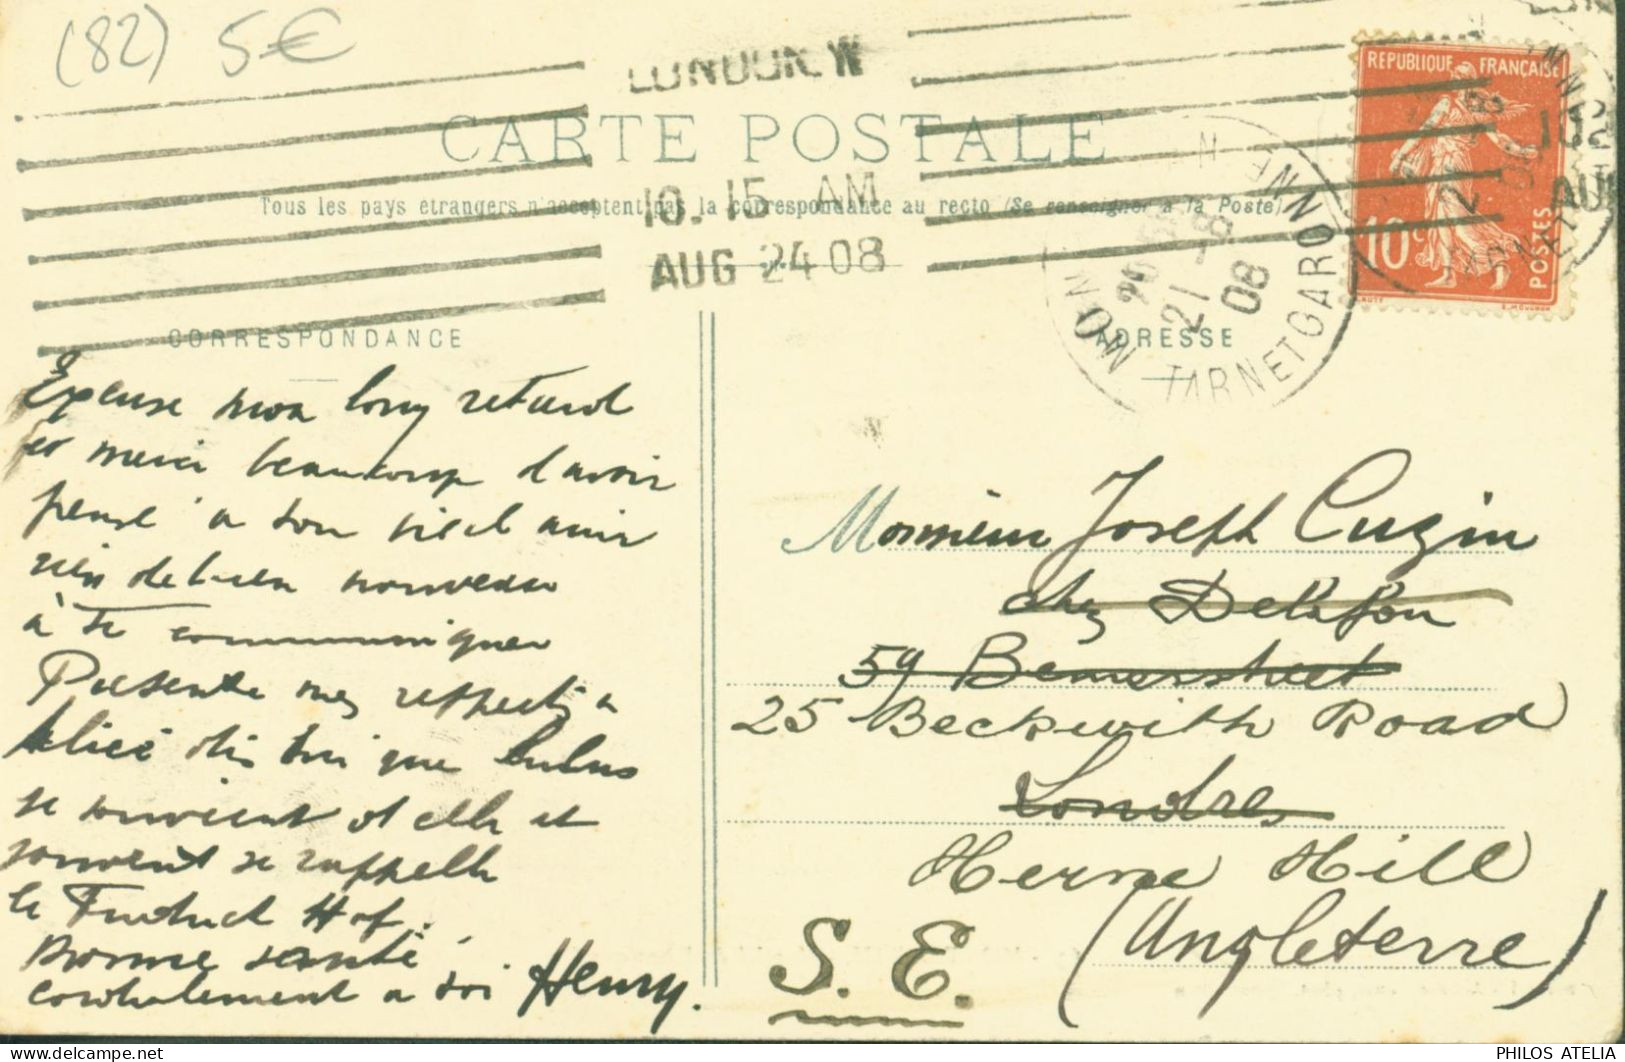 (82) 5€
LONDON W
10.15 AM
AUG 24 08
CARTE POSTALE
Tous les pays étrangers n'acceptent pas la correspondance au recto (Se renseigner à la Poste)
RÉPUBLIQUE FRANÇAISE
10c
POSTES
21 -8
08
TARN ET GARONNE
CORRESPONDANCE
ADRESSE
Excuse mon long retard
et merci beaucoup d'avoir
pensé à ton vieil ami
rien de bien nouveau
à te communiquer
Présente mes respects à
Alice dis lui que
se souvient d'elle et
souvent se rappelle
le Hof.
Bonne santé
cordialement à toi Henry.
Monsieur Joseph Cuzin
chez Delafon
59 Bernersstreet
25 Beckwith Road
Londres
Herne Hill
(Angleterre)
S. E.
PHILOS ATELIA